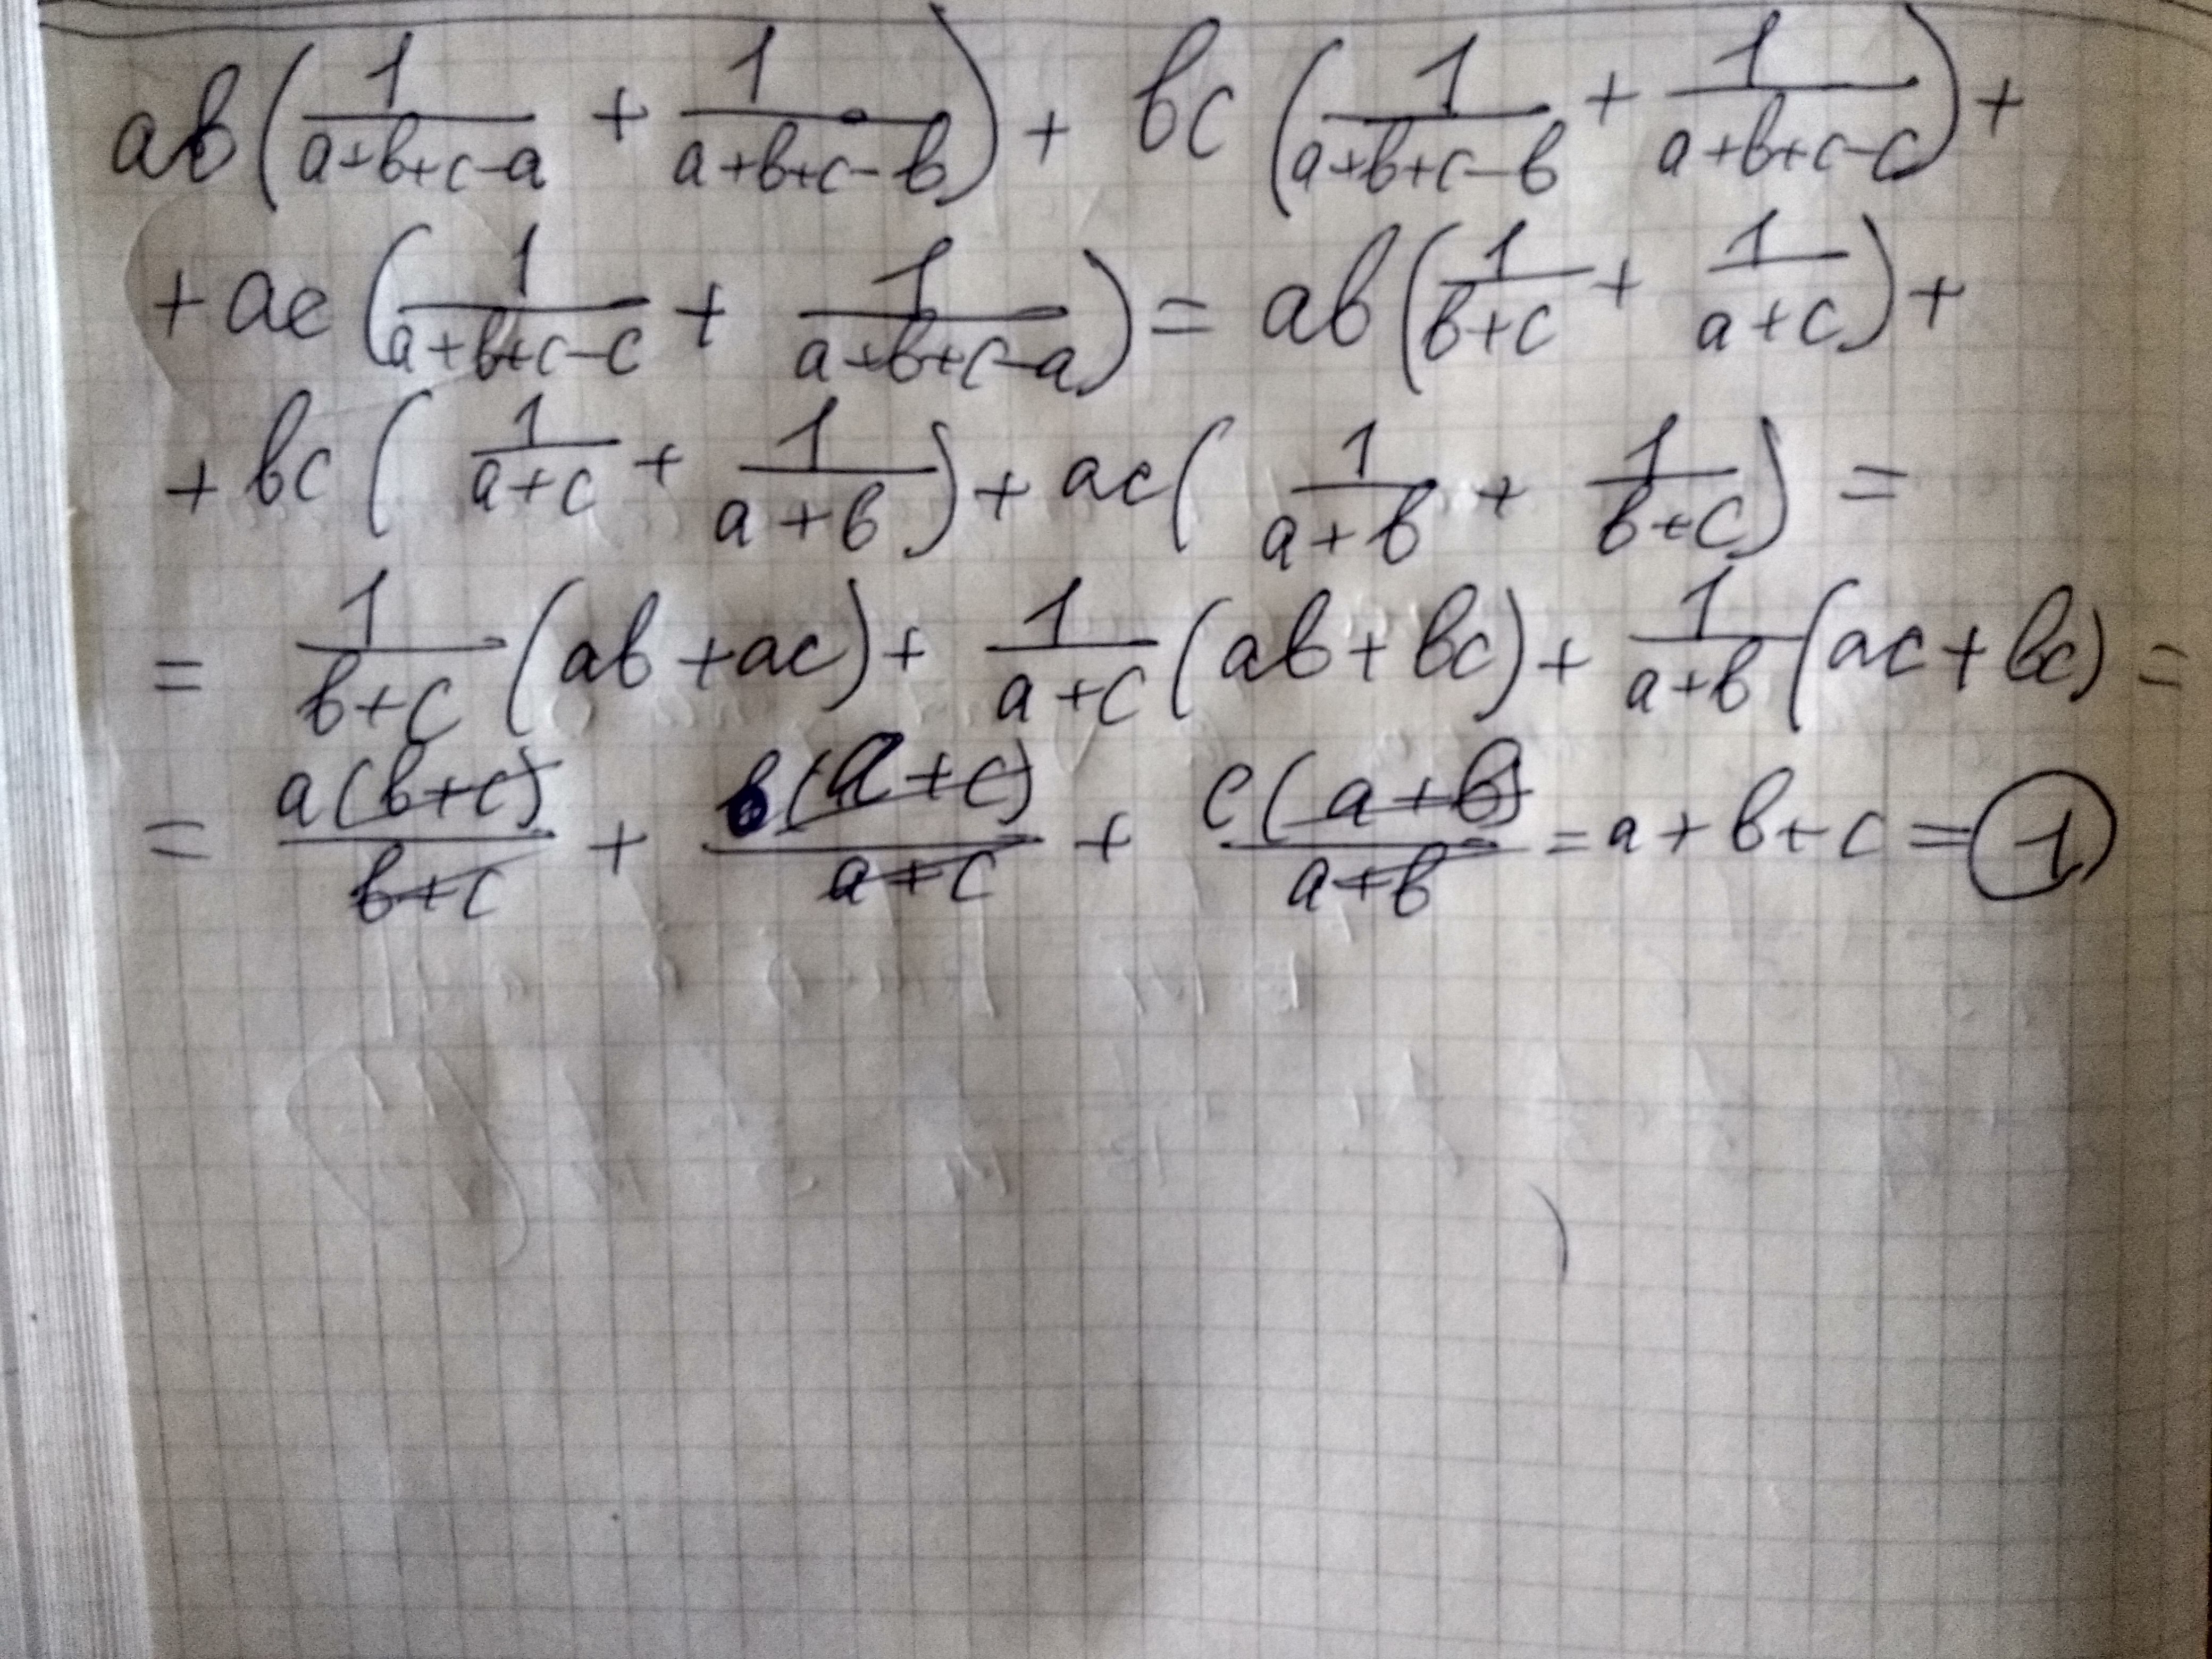 ab(1/(a+b+c-a) + 1/(a+b+c-b)) + bc(1/(a+b+c-b) + 1/(a+b+c-c)) +
+ ac(1/(a+b+c-c) + 1/(a+b+c-a)) = ab(1/(b+c) + 1/(a+c)) +
+ bc(1/(a+c) + 1/(a+b)) + ac(1/(a+b) + 1/(b+c)) =
= 1/(b+c) (ab+ac) + 1/(a+c) (ab+bc) + 1/(a+b) (ac+bc) =
= a(b+c)/(b+c) + b(a+c)/(a+c) + c(a+b)/(a+b) = a+b+c = 1